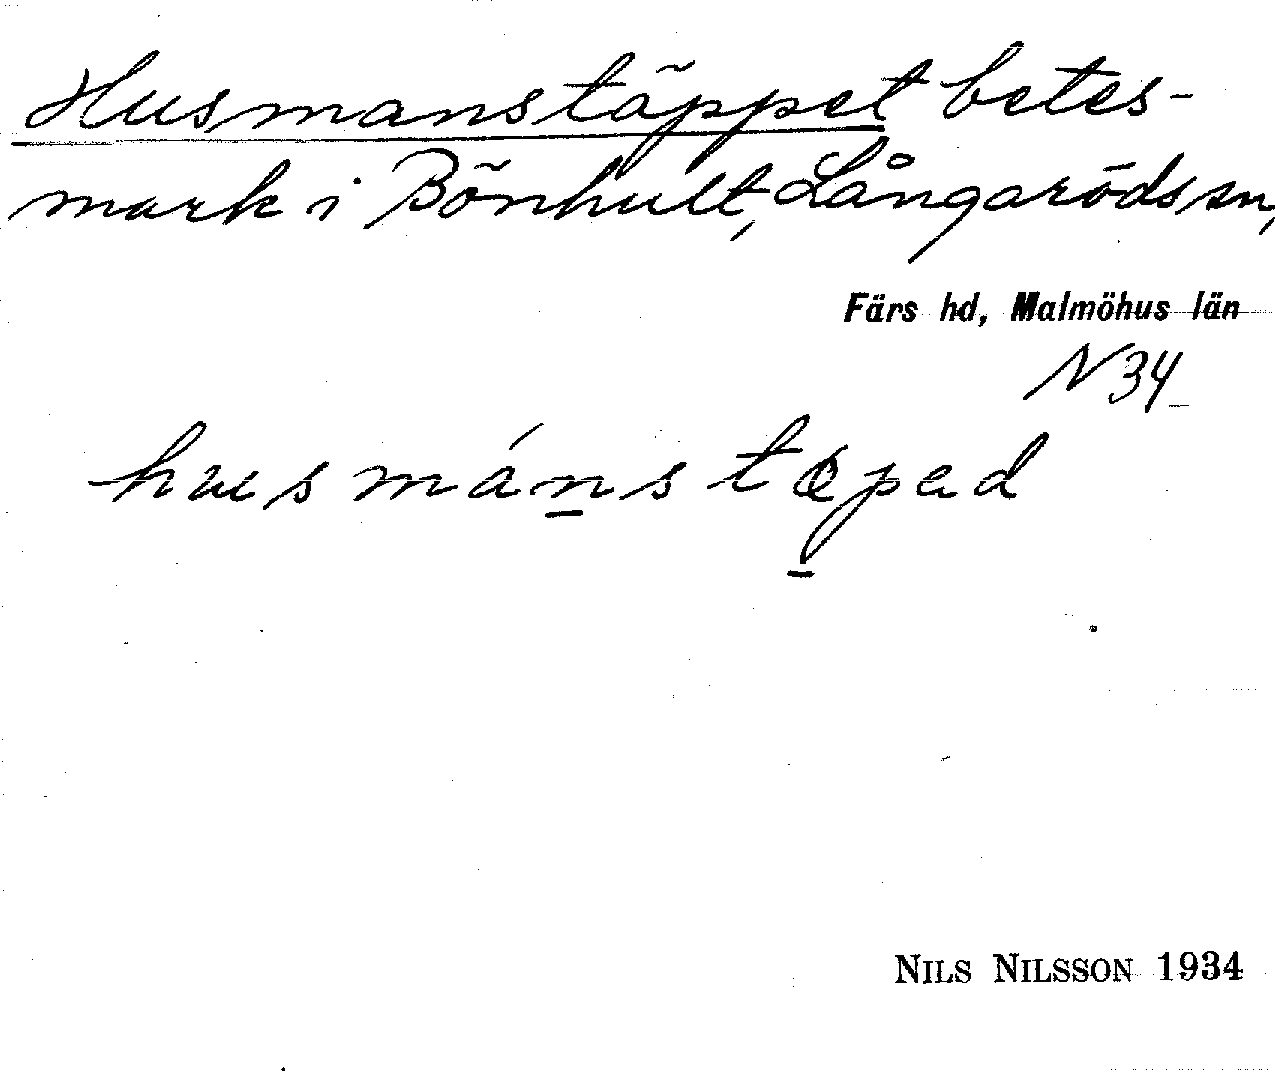 Husmanstäppet betes-
mark i Bönhult, Långaröds sn,
Färs hd, Malmöhus län
N 34
husmánstɑpəd
NILS NILSSON 1934